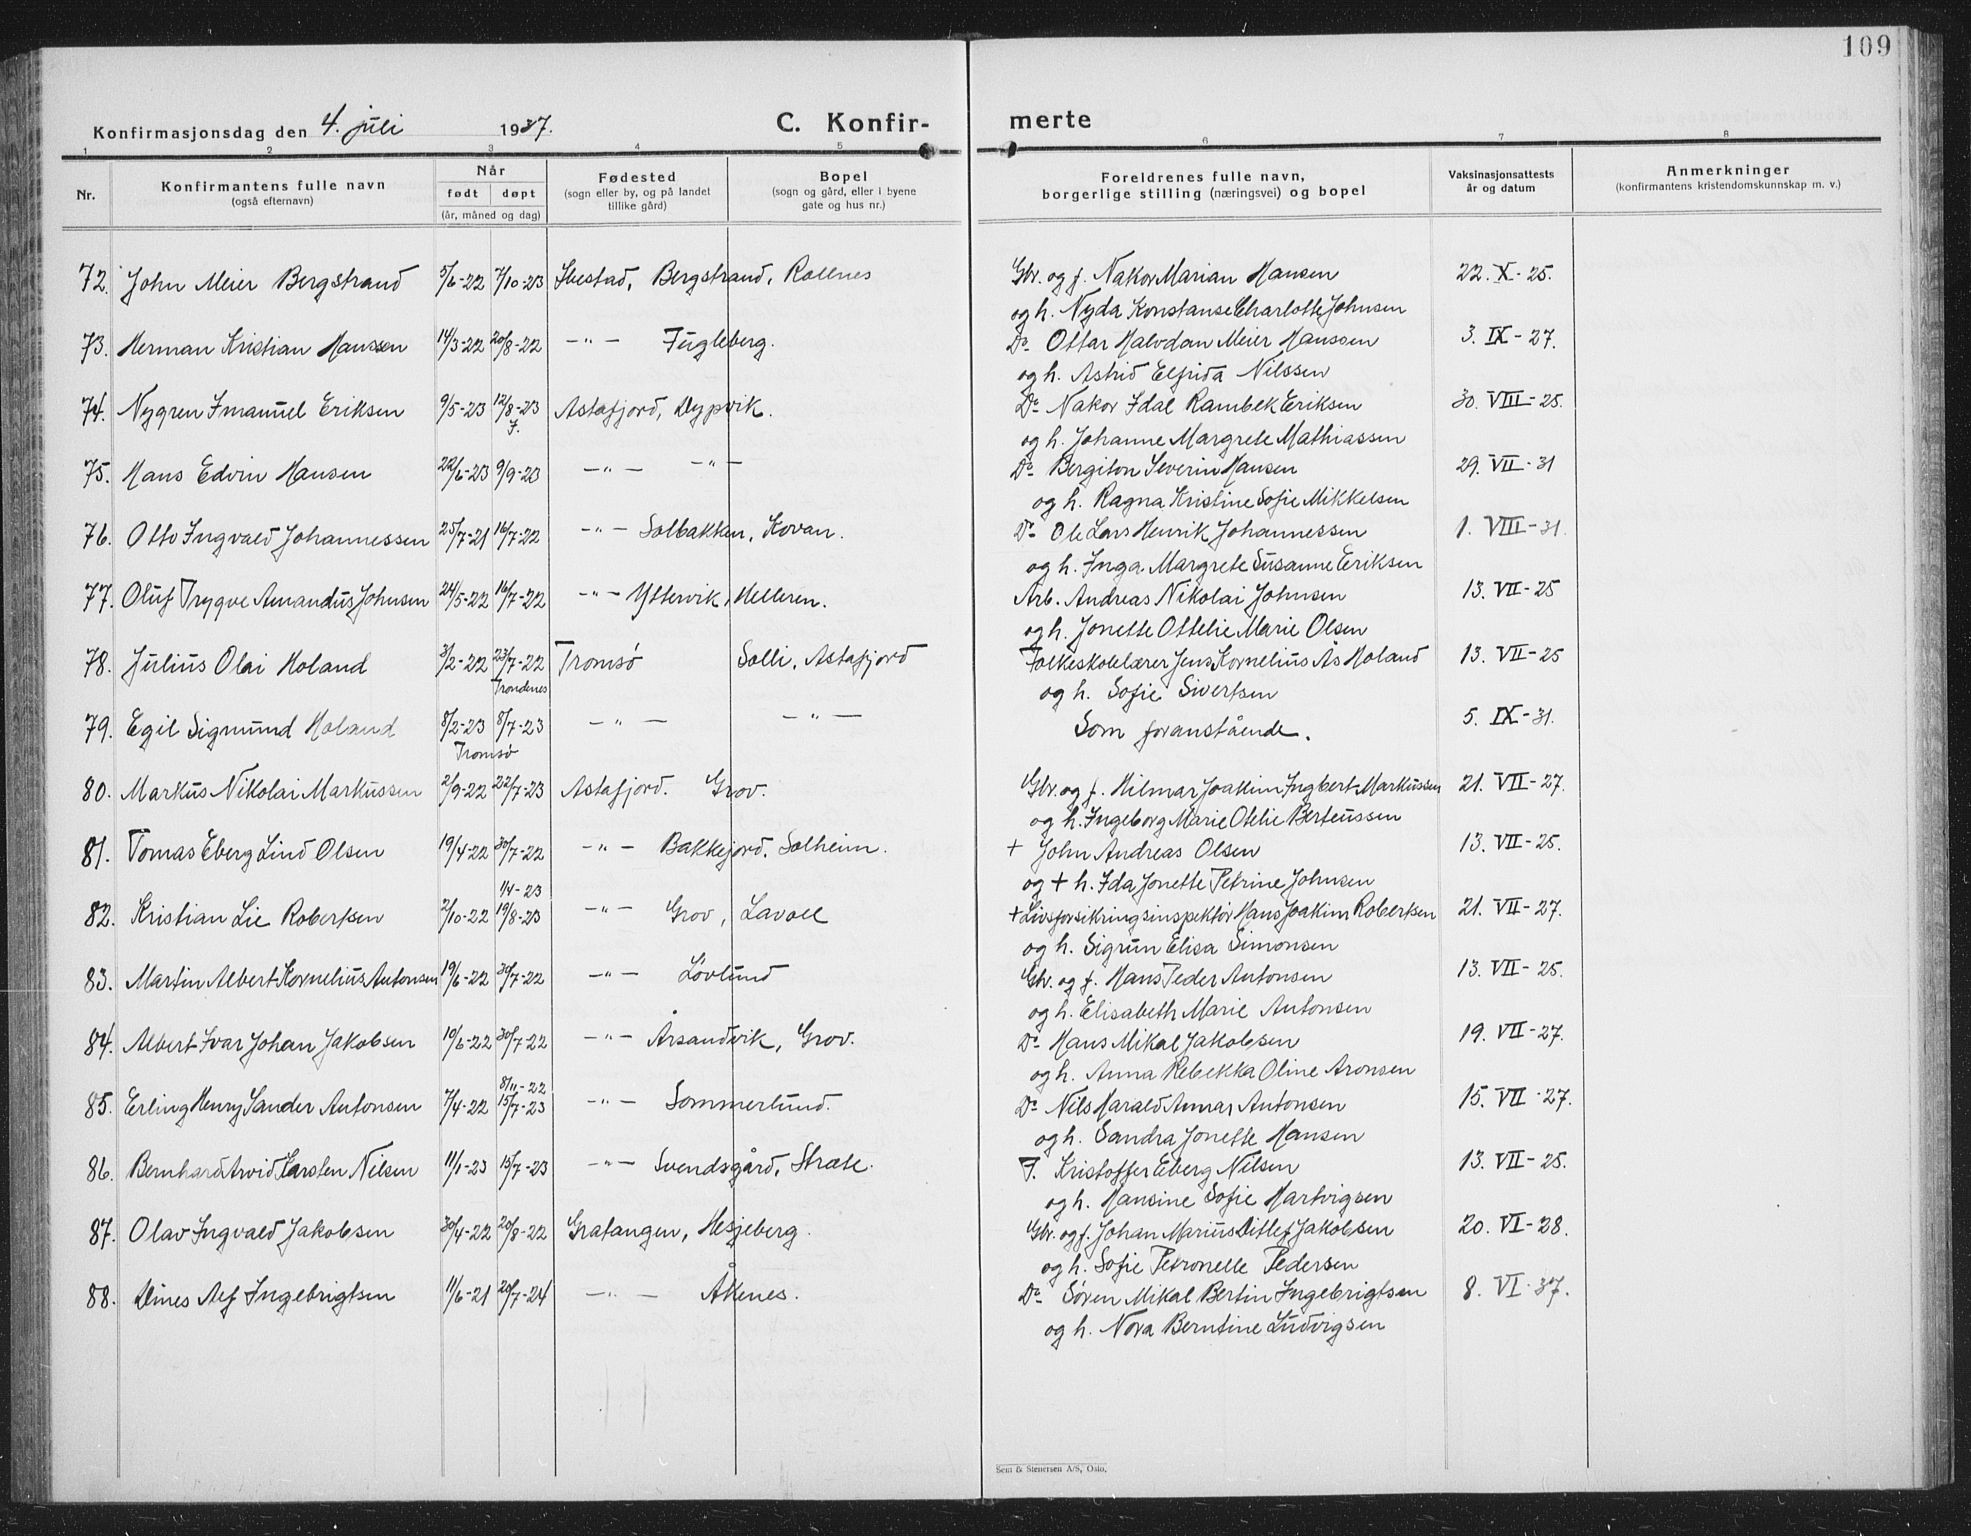 109
Konfirmasjonsdag den 4. juli 1937.
C. Konfir-
merte
1 2 3 4 5 6 7 8
Nr.
Konfirmantens fulle navn
(også efternavn)
Når
født døpt
(år, måned og dag)
Fødested
(sogn eller by, og på landet
tillike gård)
Bopel
(sogn og gård, eller i byene
gate og hus nr.)
Foreldrenes fulle navn,
borgerlige stilling (næringsvei) og bopel
Vaksinasjonsattests
år og datum
Anmerkninger
(konfirmantens kristendomskunnskap m. v.)
72. John Meier Bergstrand 5/6-22 7/10-23 Ibestad, Bergstrand, Rollnes Gbr. og f. Nakor Marian Hansen 22. X - 25.
og h. Nyda Konstanse Charlotte Johnsen
73. Herman Kristian Hanssen 14/3-22 20/8-22 -"- Fugleberg. Do Ottar Halvdan Meier Hanssen 3. IX - 27.
og h. Astrid Elfrida Nilssen
74. Nygren Imanuel Eriksen 9/5-23 12/8-23 Astafjord, Dypvik. Do Nakor Idal Rambek Eriksen 30. VIII - 25.
f. og h. Johanne Margrete Mathiassen
75. Hans Edvin Hansen 22/6-23 9/9-23 -"- -"- Do Bergiton Severin Hansen 29. VII - 31
og h. Ragna Kristine Sofie Mikkelsen
76. Otto Ingvald Johannessen 25/7-21 16/7-22 -"- Solbakken, Kovan. Do Ole Lars Henrik Johannessen 1. VIII - 31.
og h. Inga Margrete Susanne Eriksen
77. Oluf Trygve Amandus Johnsen 24/5-22 16/7-22 -"- Yttervik, Helleren. Arb. Andreas Nikolai Johnsen 13. VII - 25
og h. Jonette Ottelie Marie Olsen
78. Julius Olai Holand 3/2-22 23/7-22 Tromsø Solli, Astafjord Folkeskolelærer Jens Kornelius Ås Holand 13. VII - 25
Trondenes og h. Sofie Sivertsen
79. Egil Sigmund Holand 8/2-23 8/7-23 -"- -"- Som foranstående. 5. IX - 31.
Tromsø
80. Markus Nikolai Markussen 2/9-22 22/7-23 Astafjord. Grov. Gbr. og f. Hilmar Joakim Ingbert Markussen 21. VII - 27.
og h. Ingeborg Marie Otelie Berteussen
81. Tomas Eberg Lind Olsen 19/4-22 30/7-22 -"- Bakkejord. Solheim. + John Andreas Olsen 13. VII - 25.
og + h. Ida Jonette Petrine Johnsen
1/4-23
82. Kristian Lie Robertsen 2/10-22 19/8-23 -"- Grov, Lavoll + Livsforsikringsinspektør Hans Joakim Robertsen 21. VII - 27.
og h. Sigrun Elisa Simonsen
83. Martin Albert Kornelius Antonsen 19/6-22 30/7-22 -"- Løvlund Gbr. og f. Hans Peder Antonsen 13. VII - 25.
og h. Elisabeth Marie Antonsen
84. Albert Ivar Johan Jakobsen 10/6-22 30/7-22 -"- Årsandvik, Grov. Do Hans Mikal Jakobsen 19. VII - 27.
og h. Anna Rebekka Oline Aronsen
8/11-22
85. Erling Henry Sander Antonsen 7/4-22 15/7-23 -"- Sommerlund. Do Nils Harald Annar Antonsen 15. VII - 27.
og h. Sandra Jonette Hansen
86. Bernhard Arvid Karsten Nilsen 11/1-23 15/7-23 -"- Svendsgård, Stræte. F. Kristoffer Eberg Nilsen 13. VII - 25.
og h. Hansine Sofie Hartvigsen
87. Olav Ingvald Jakobsen 30/4-22 20/8-22 Gratangen, Hesjeberg. Gbr. og f. Johan Marius Ditlef Jakobsen 20. VI - 28.
og h. Sofie Petronelle Pedersen
88. Dines Alf Ingebrigtsen 11/6-21 20/7-24 -"- Åkenes. Do Søren Mikal Bertin Ingebrigtsen 8. VI - 37.
og h. Nora Berntine Ludvigsen
Sem & Stenersen A/S, Oslo.